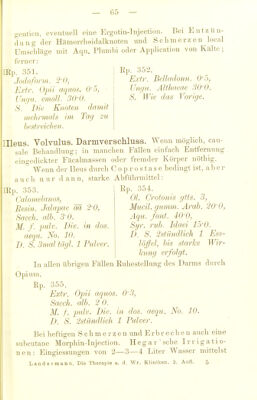 — 65 —
gentien, eventuell eine Ergotin-Injection. Bei Entzün-
dung der Hämorrhoidalknoten und Schmerzen local
Umschläge mit Aqu. Plumbi oder Application von Kälte;
ferner:
Rp. 351.
Jodoform. 2·0,
Extr. Opii aquos. 0·5,
Ungu. emoll. 30·0.
S. Die Knoten damit
mehrmals im Tag zu
bestreichen.
Rp. 352.
Extr. Belladonn. 0·5,
Ungu. Althaeae 30·0.
S. Wie das Vorige.
Ileus. Volvulus. Darmverschluss. Wenn möglich, cau-
sale Behandlung; in manchen Fällen einfach Entfernung
eingedickter Fäcalmassen oder fremder Körper nöthig.
Wenn der Ileus durch Coprostase bedingt ist, aber
auch nur dann, starke Abführmittel:
Rp. 353.
Calomelanos,
Resin. Jalapae āā 2·0,
Sacch. alb. 3·0.
M. f. pulv. Div. in dos.
aequ. No. 10.
D. S. 3mal tägl. 1 Pulver.
Rp. 354.
Ol. Crotonis gtts. 3,
Mucil. gumm. Arab. 20·0,
Aqu. font. 40·0,
Syr. rub. Idaei 15·0.
D. S. 2stündlich 1 Ess-
löffel, bis starke Wir-
kung erfolgt.
In allen übrigen Fällen Ruhestellung des Darms durch
Opium.
Rp. 355.
Extr. Opii aquos. 0·3,
Sacch. alb. 2·0.
M. f. pulv. Div. in dos. aequ. No. 10.
D. S. 2stündlich 1 Pulver.
Bei heftigen Schmerzen und Erbrechen auch eine
subcutane Morphin-Injection. Hegar'sche Irrigatio-
nen: Eingiessungen von 2—3—4 Liter Wasser mittelst
Landesmann, Die Therapie a. d. Wr. Kliniken. 2. Aufl. 5